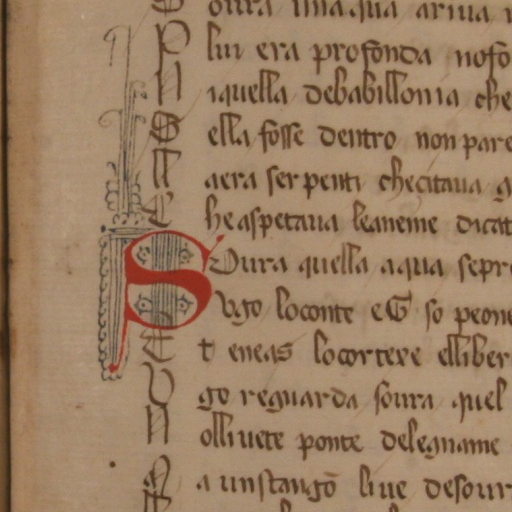 S oura una qua ariua
P lui era profonda nofo
N iquella debabillonia che
S ella fosse dentro non pare
LL aera serpenti checitaua g
C he aspetaua leaneme dicat
S Oura quella aqua sepre
Vgo loconte eG so peone
E t eneas locortexe elliber
V go reguarda soura quel
N olli uete ponte delegname
A a unstango liue desour